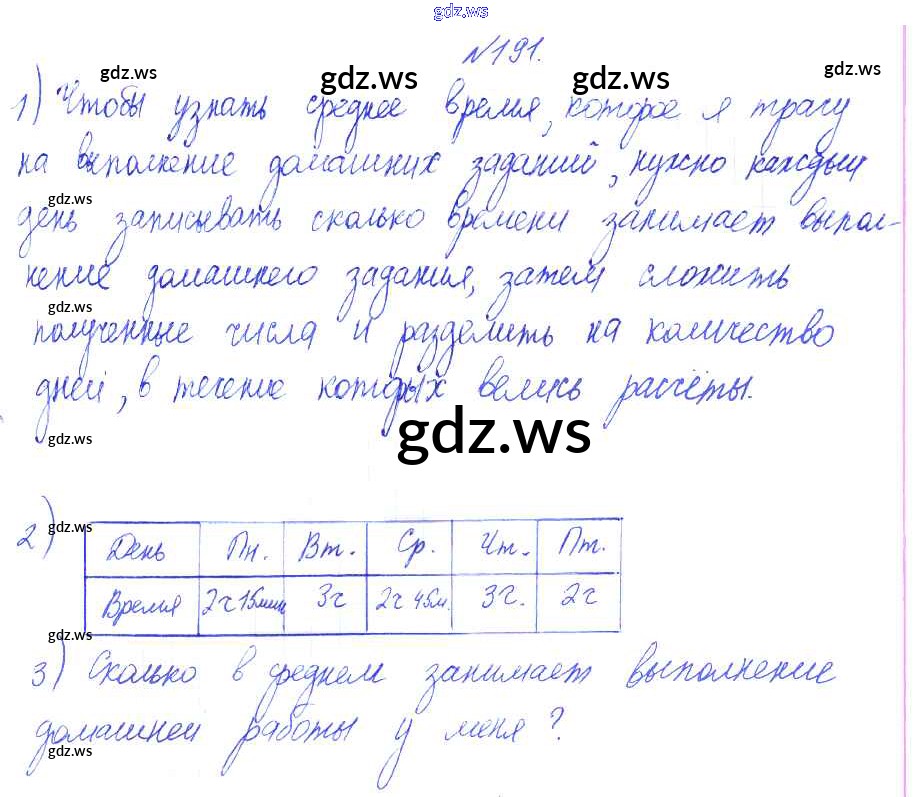 gdz.ws
№191.
gdz.ws gdz.ws gdz.ws
1) Чтобы узнать среднее время, которое я трачу
на выполнение домашних заданий, нужно каждый
gdz.ws
день записывать сколько времени занимает выпол-
нение домашнего задания, затем сложить
gdz.ws
полученные числа и разделить на количество
дней, в течение которых велись расчёты.
gdz.ws
gdz.ws
2)
gdz.ws
День Пн. Вт. Ср. Чт. Пт.
Время 2ч 15мин 3ч 2ч 45м. 3ч. 2ч
gdz.ws
3) Сколько в среднем занимает выполнение
домашней работы у меня?
gdz.ws